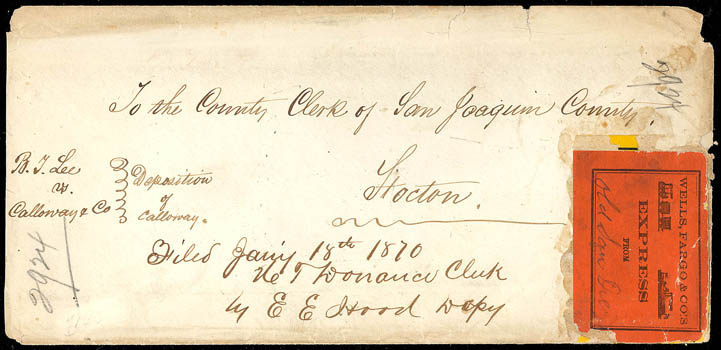 To the County Clerk of San Joaquin County.
Stocton.
B. T. Lee
vs.
Calloway & Co
Deposition
of
Calloway.
Filed Jan'y 18th 1870
Clerk
by E E Hood Depy
2924
2924
WELLS, FARGO & CO'S
EXPRESS
FROM
Old San